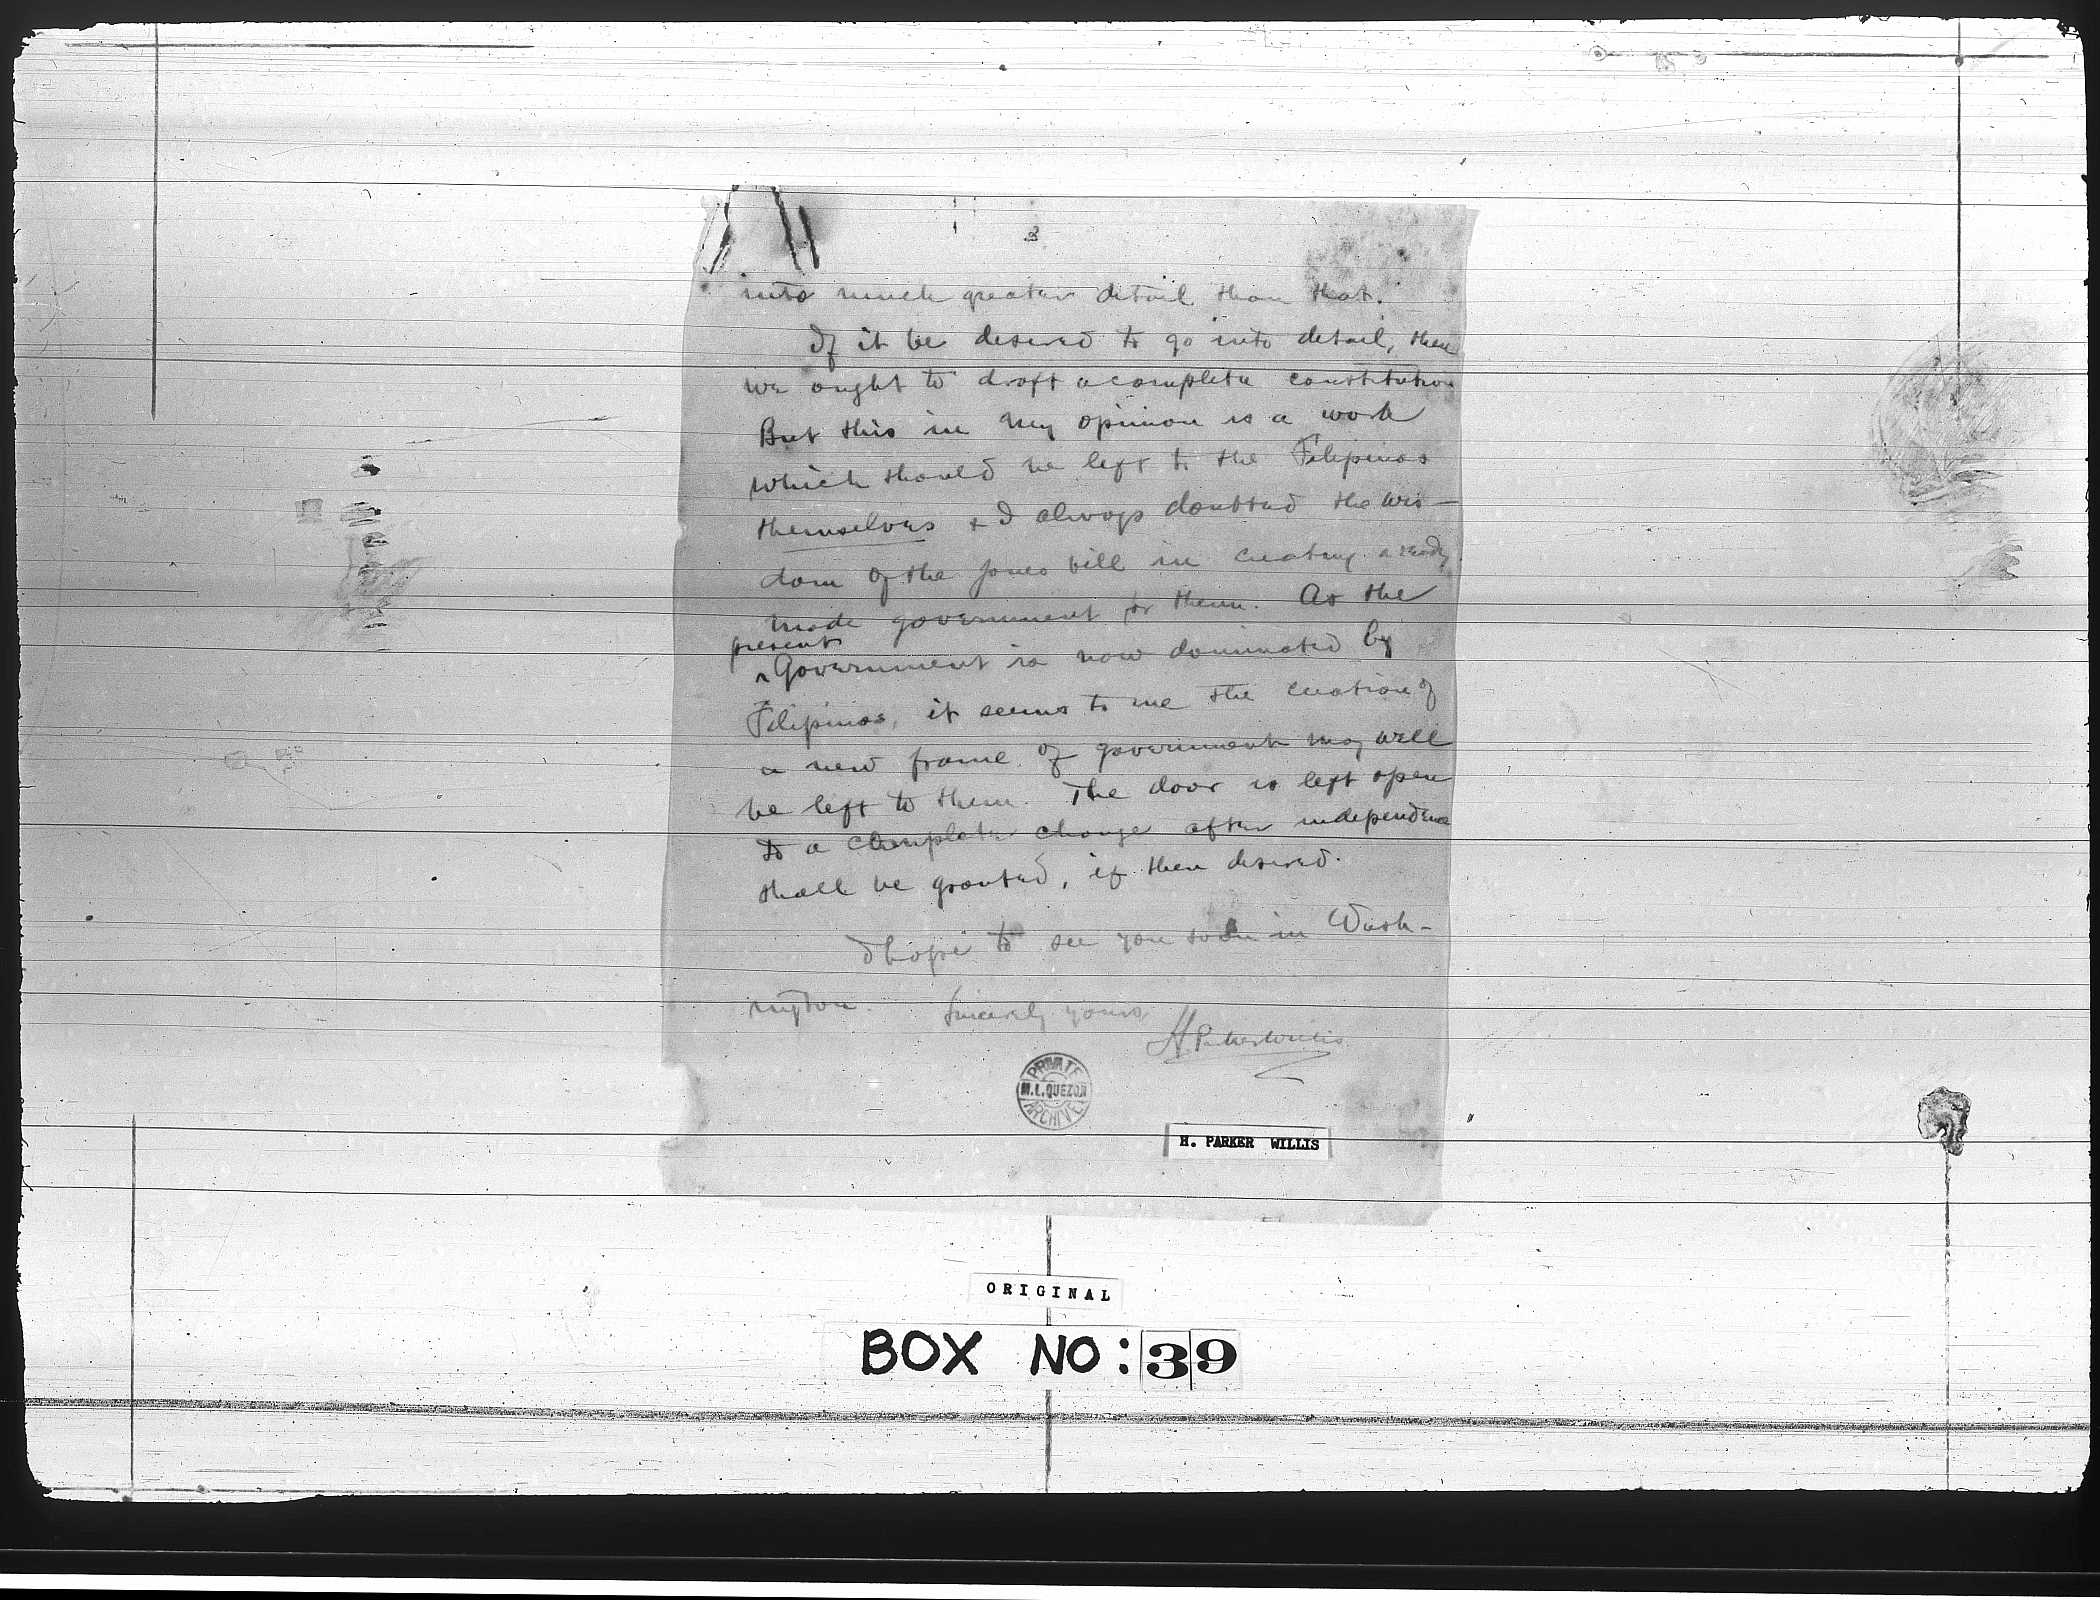 3
into much greater detail than that.
If it be desired to go into detail, then
we ought to draft a complete constitution
But this in my opinion is a work
which should be left to the Filipinos
themselves & I always doubted the wis-
dom of the Jones bill in creating a ready
made government for them. As the
present
^Government is now dominated by
Filipinos, it seems to me the creation of
a new frame of government may well
be left to them. The door is left open
to a complete change after independence
shall be granted, if then desired.
I hope to see you soon in Wash-
ington. Sincerely yours
H Parker Willis
PRIVATE
M.L.QUEZON
ARCHIVE
H. PARKER WILLIS
ORIGINAL
BOX NO: 39